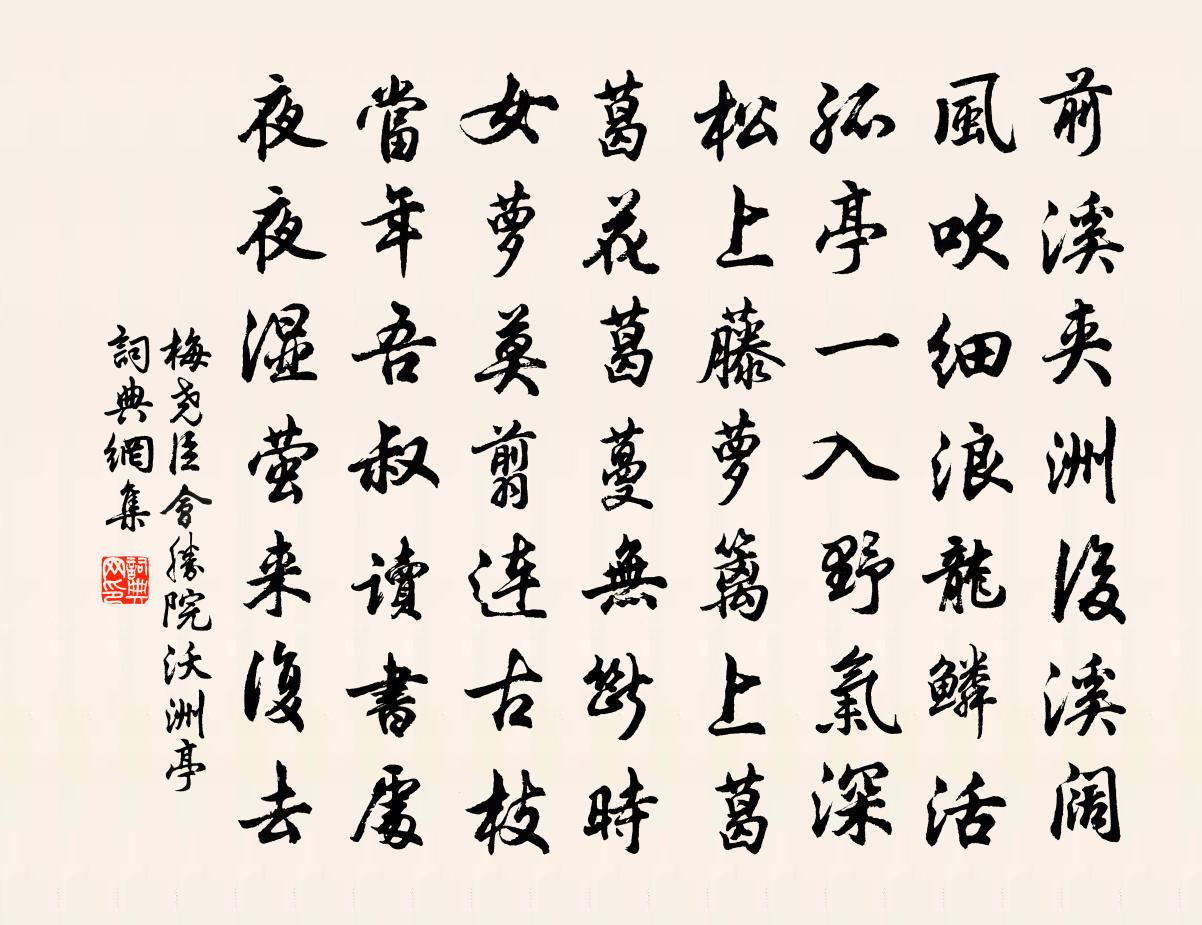 前溪夾洲後溪闊
風吹細浪龍鱗活
孤亭一入野氣深
松上藤萝篱上葛
葛花葛蔓無斷時
女萝莫翦連古枝
當年吾叔讀書處
夜夜濕萤来復去
梅堯臣會勝院沃洲亭
詞典網集
詞典网印